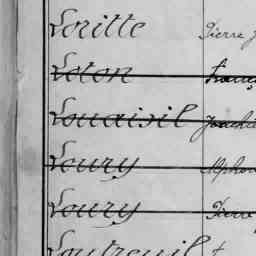 Loritte Pierre J
Loton Franç
Louaisil Joachi
Loury Alphon
Loury Pierre
Loutreuil